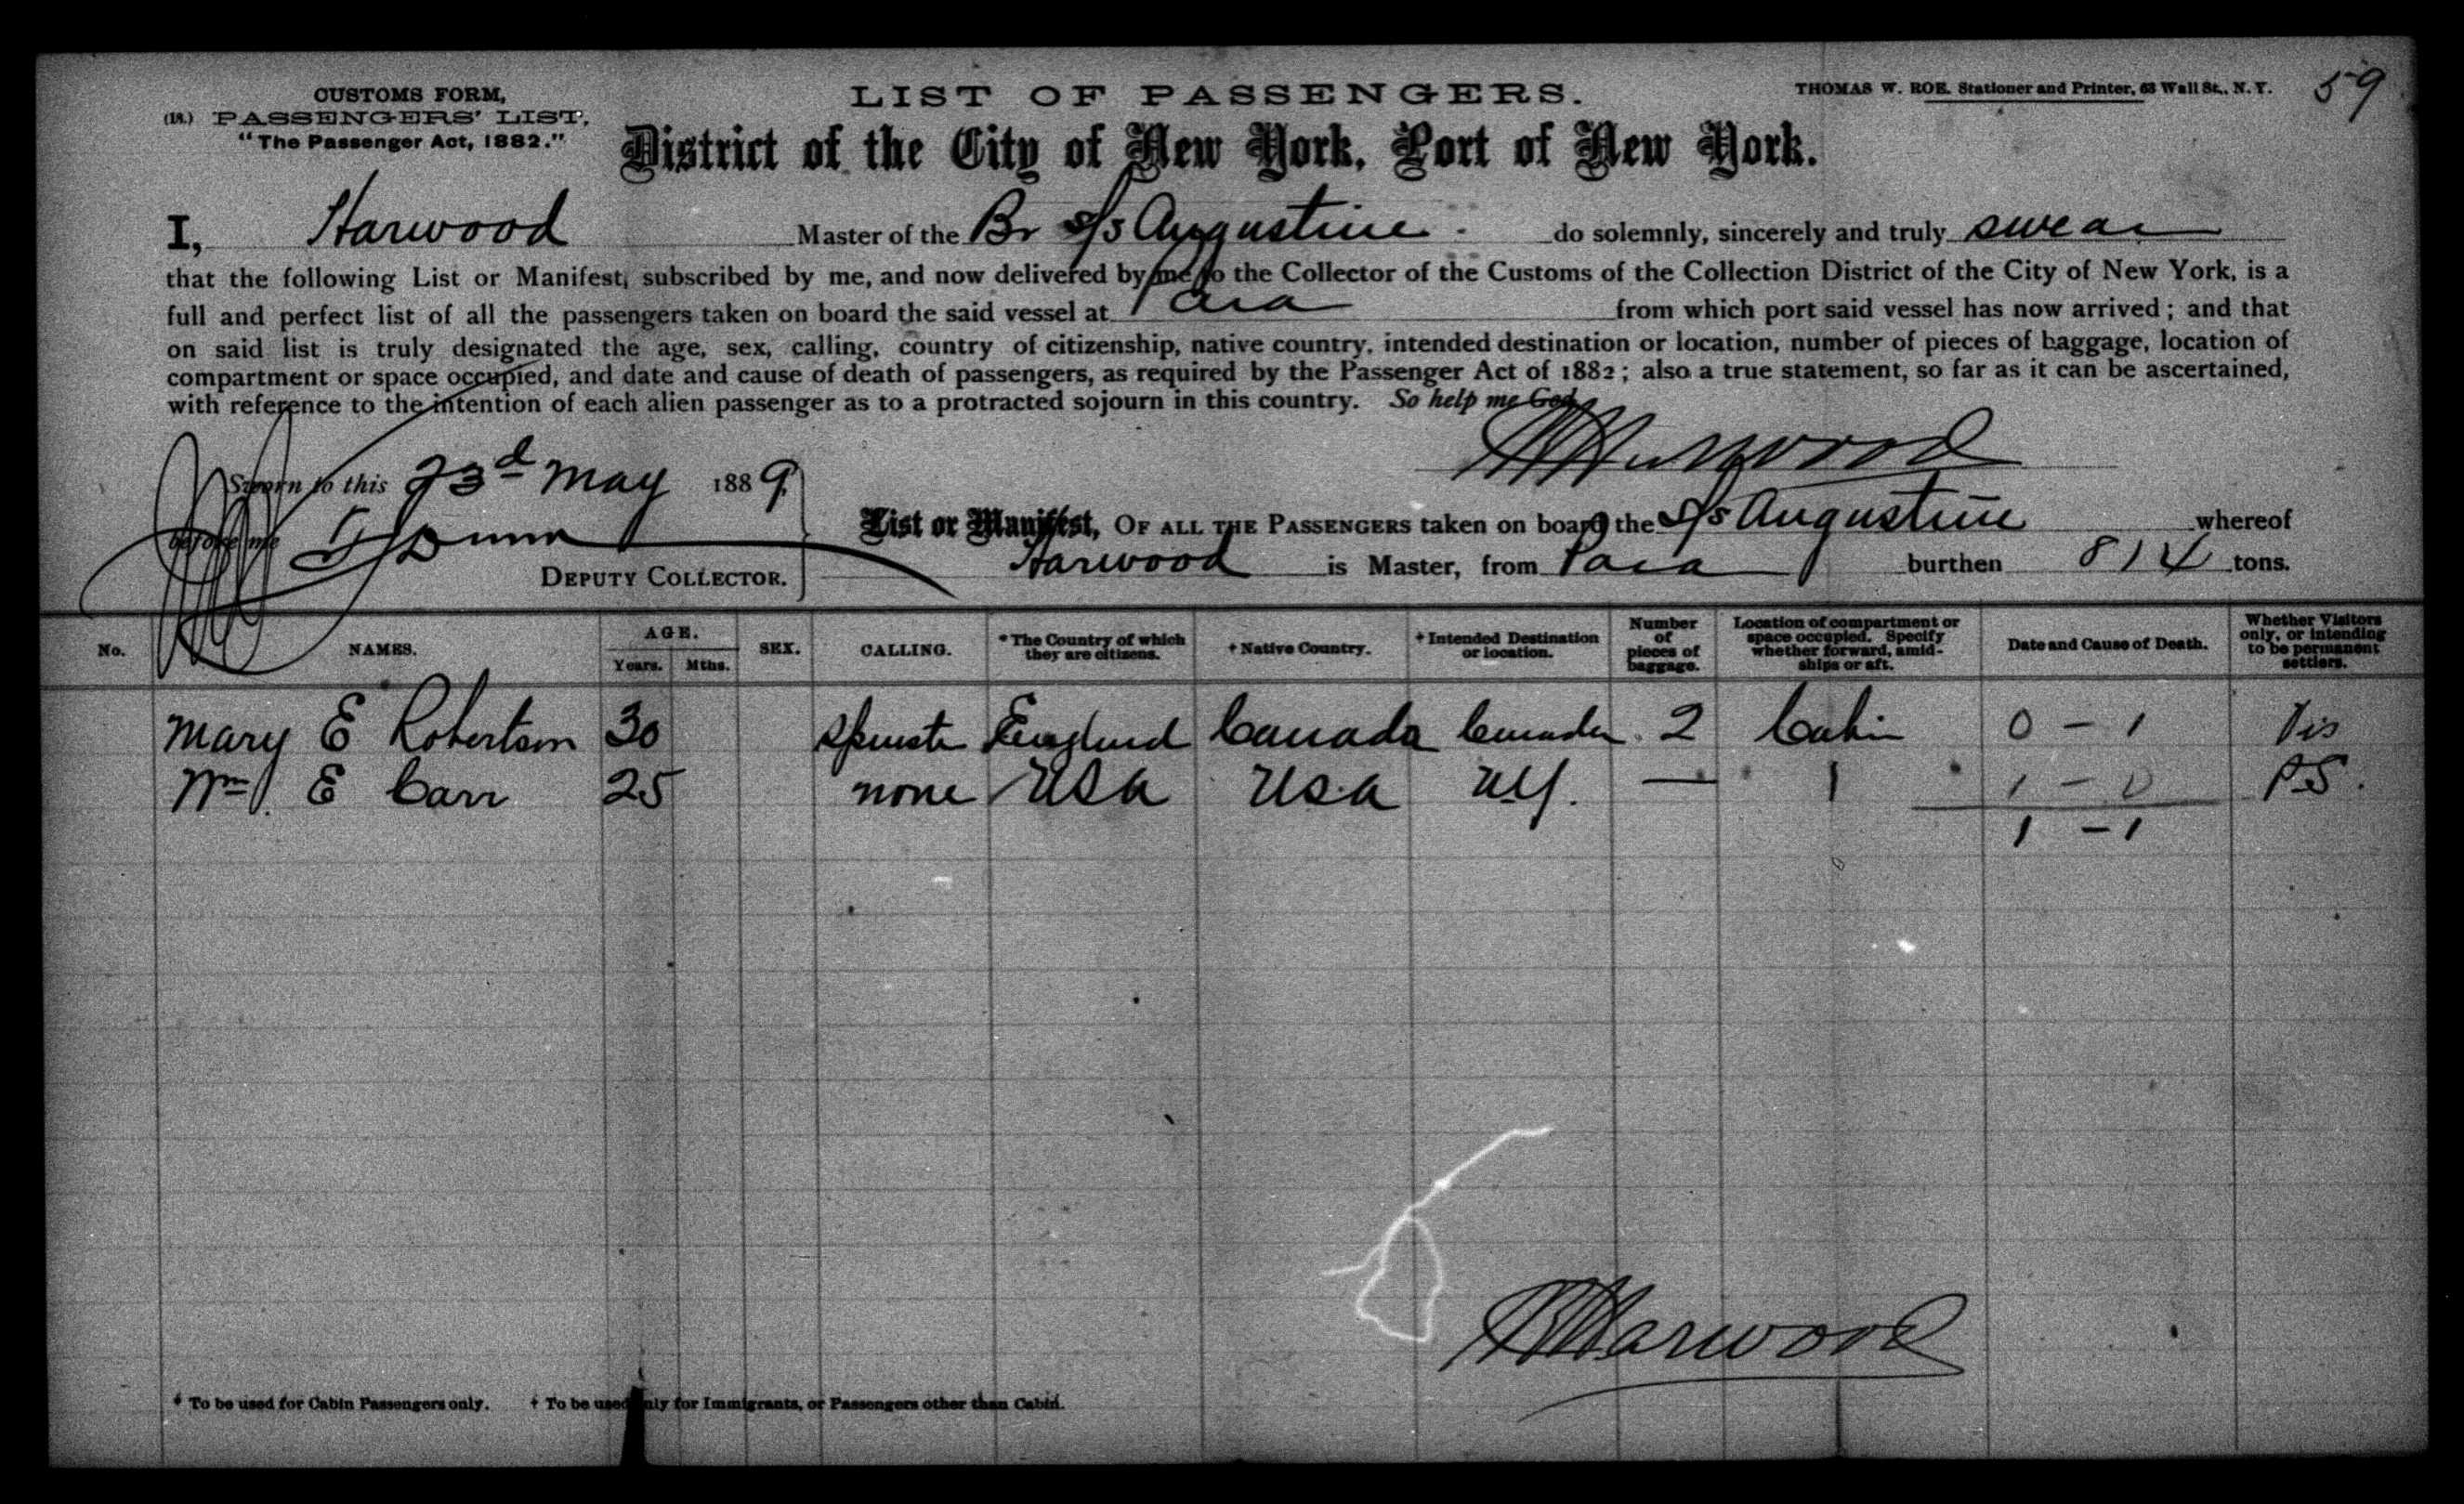 CUSTOMS FORM,
(18.) PASSENGERS' LIST,
"The Passenger Act, 1882."
LIST OF PASSENGERS.
THOMAS W. ROE. Stationer and Printer, 63 Wall St., N. Y.
59
District of the City of New York, Port of New York.
I, Harwood Master of the Br S/S Augustine do solemnly, sincerely and truly swear
that the following List or Manifest, subscribed by me, and now delivered by me to the Collector of the Customs of the Collection District of the City of New York, is a
full and perfect list of all the passengers taken on board the said vessel at Para from which port said vessel has now arrived; and that
on said list is truly designated the age, sex, calling, country of citizenship, native country, intended destination or location, number of pieces of baggage, location of
compartment or space occupied, and date and cause of death of passengers, as required by the Passenger Act of 1882; also a true statement, so far as it can be ascertained,
with reference to the intention of each alien passenger as to a protracted sojourn in this country. So help me God.
Harwood
Sworn to this 23d May 1889
before me Dunn
DEPUTY COLLECTOR.
List or Manifest, OF ALL THE PASSENGERS taken on board the S/S Augustine whereof
Harwood is Master, from Para burthen 814 tons.
No. NAMES. AGE. Years. Mths. SEX. CALLING. *The Country of which they are citizens. †Native Country. †Intended Destination or location. Number of pieces of baggage. Location of compartment or space occupied. Specify whether forward, amidships or aft. Date and Cause of Death. Whether Visitors only, or intending to be permanent settlers.
Mary E Robertson 30 Spinster England Canada Canada 2 Cabin 0 - 1 Vis
Wm E Carr 25 none USA USA NY. — 1 1 - 0 P.S.
1 - 1
Harwood
* To be used for Cabin Passengers only. † To be used only for Immigrants, or Passengers other than Cabin.